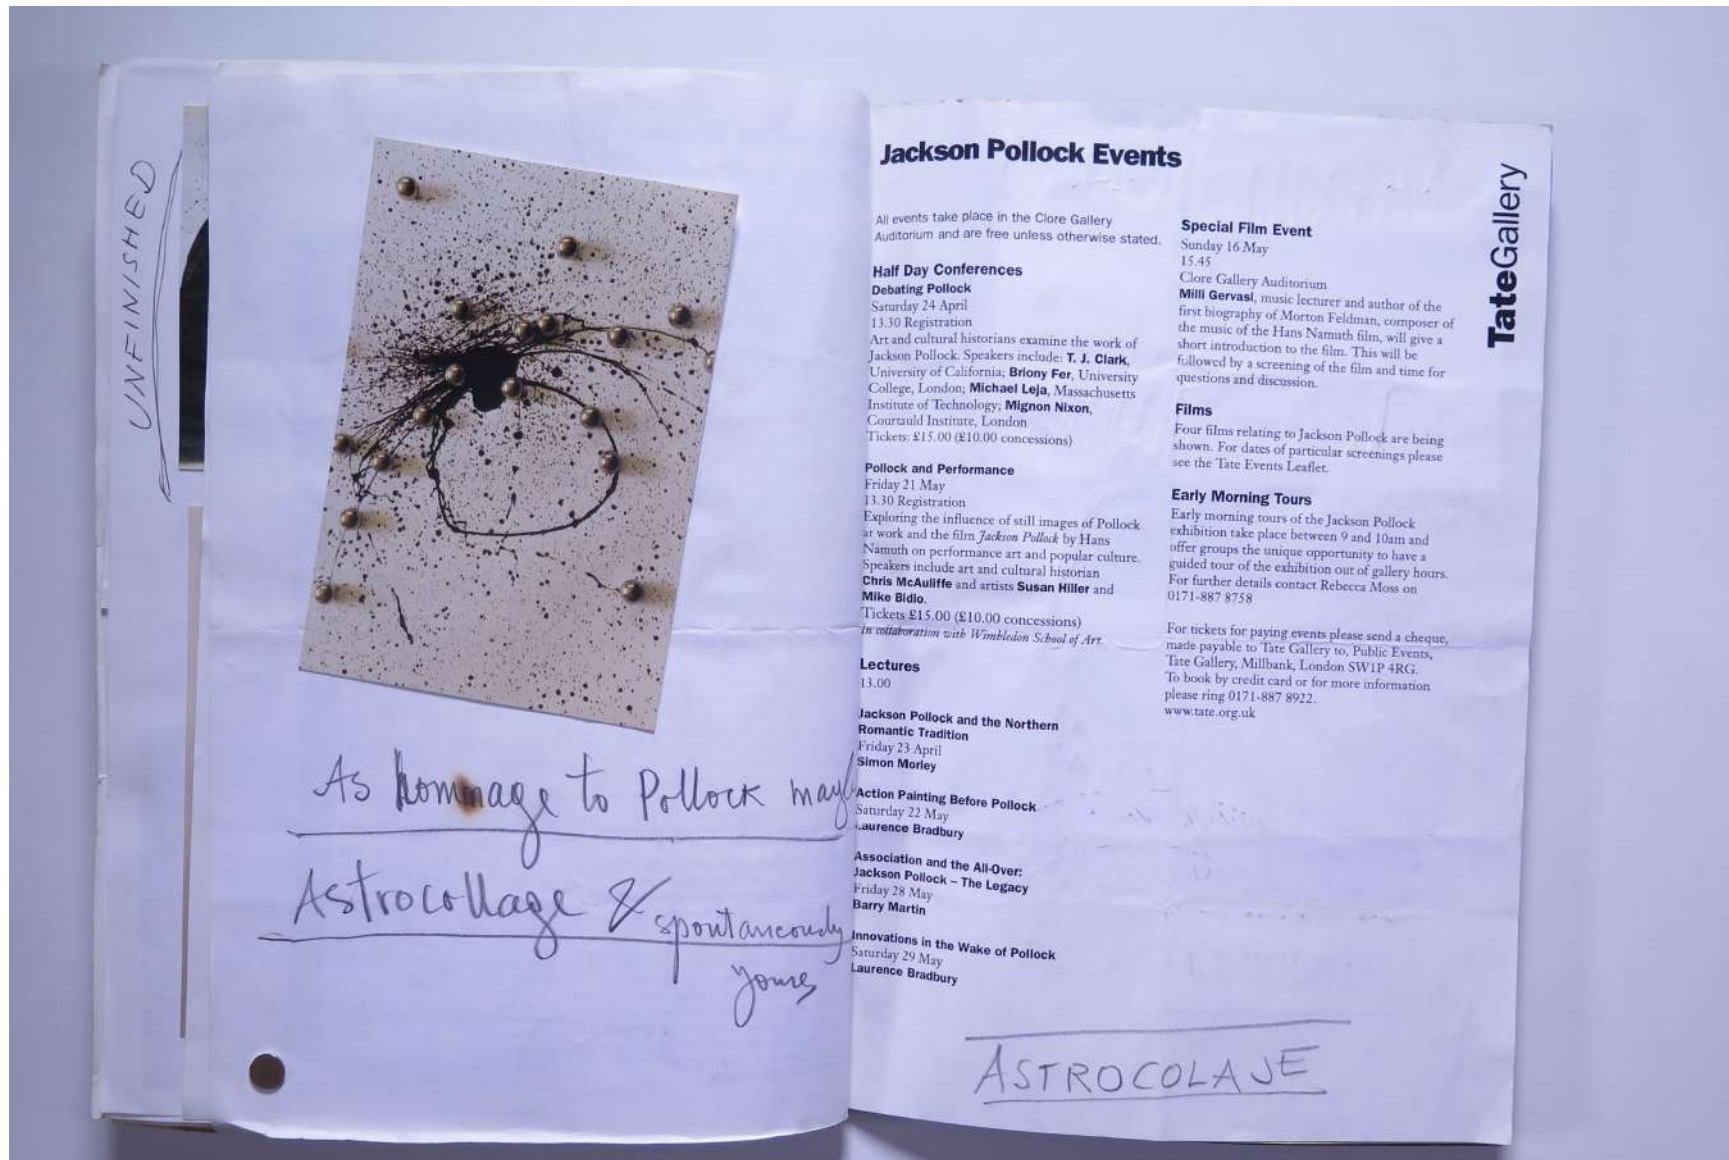 UNFINISHED
As hommage to Pollock may
Astrocollage & spontaneously
yours
Jackson Pollock Events
TateGallery
All events take place in the Clore Gallery
Auditorium and are free unless otherwise stated.
Half Day Conferences
Debating Pollock
Saturday 24 April
13.30 Registration
Art and cultural historians examine the work of
Jackson Pollock. Speakers include: T. J. Clark,
University of California; Briony Fer, University
College, London; Michael Leja, Massachusetts
Institute of Technology; Mignon Nixon,
Courtauld Institute, London
Tickets: £15.00 (£10.00 concessions)
Pollock and Performance
Friday 21 May
13.30 Registration
Exploring the influence of still images of Pollock
at work and the film Jackson Pollock by Hans
Namuth on performance art and popular culture.
Speakers include art and cultural historian
Chris McAuliffe and artists Susan Hiller and
Mike Bidlo.
Tickets £15.00 (£10.00 concessions)
in collaboration with Wimbledon School of Art.
Lectures
13.00
Jackson Pollock and the Northern
Romantic Tradition
Friday 23 April
Simon Morley
Action Painting Before Pollock
Saturday 22 May
Laurence Bradbury
Association and the All-Over:
Jackson Pollock – The Legacy
Friday 28 May
Barry Martin
Innovations in the Wake of Pollock
Saturday 29 May
Laurence Bradbury
Special Film Event
Sunday 16 May
15.45
Clore Gallery Auditorium
Milli Gervasi, music lecturer and author of the
first biography of Morton Feldman, composer of
the music of the Hans Namuth film, will give a
short introduction to the film. This will be
followed by a screening of the film and time for
questions and discussion.
Films
Four films relating to Jackson Pollock are being
shown. For dates of particular screenings please
see the Tate Events Leaflet.
Early Morning Tours
Early morning tours of the Jackson Pollock
exhibition take place between 9 and 10am and
offer groups the unique opportunity to have a
guided tour of the exhibition out of gallery hours.
For further details contact Rebecca Moss on
0171-887 8758
For tickets for paying events please send a cheque,
made payable to Tate Gallery to, Public Events,
Tate Gallery, Millbank, London SW1P 4RG.
To book by credit card or for more information
please ring 0171-887 8922.
www.tate.org.uk
ASTROCOLAJE